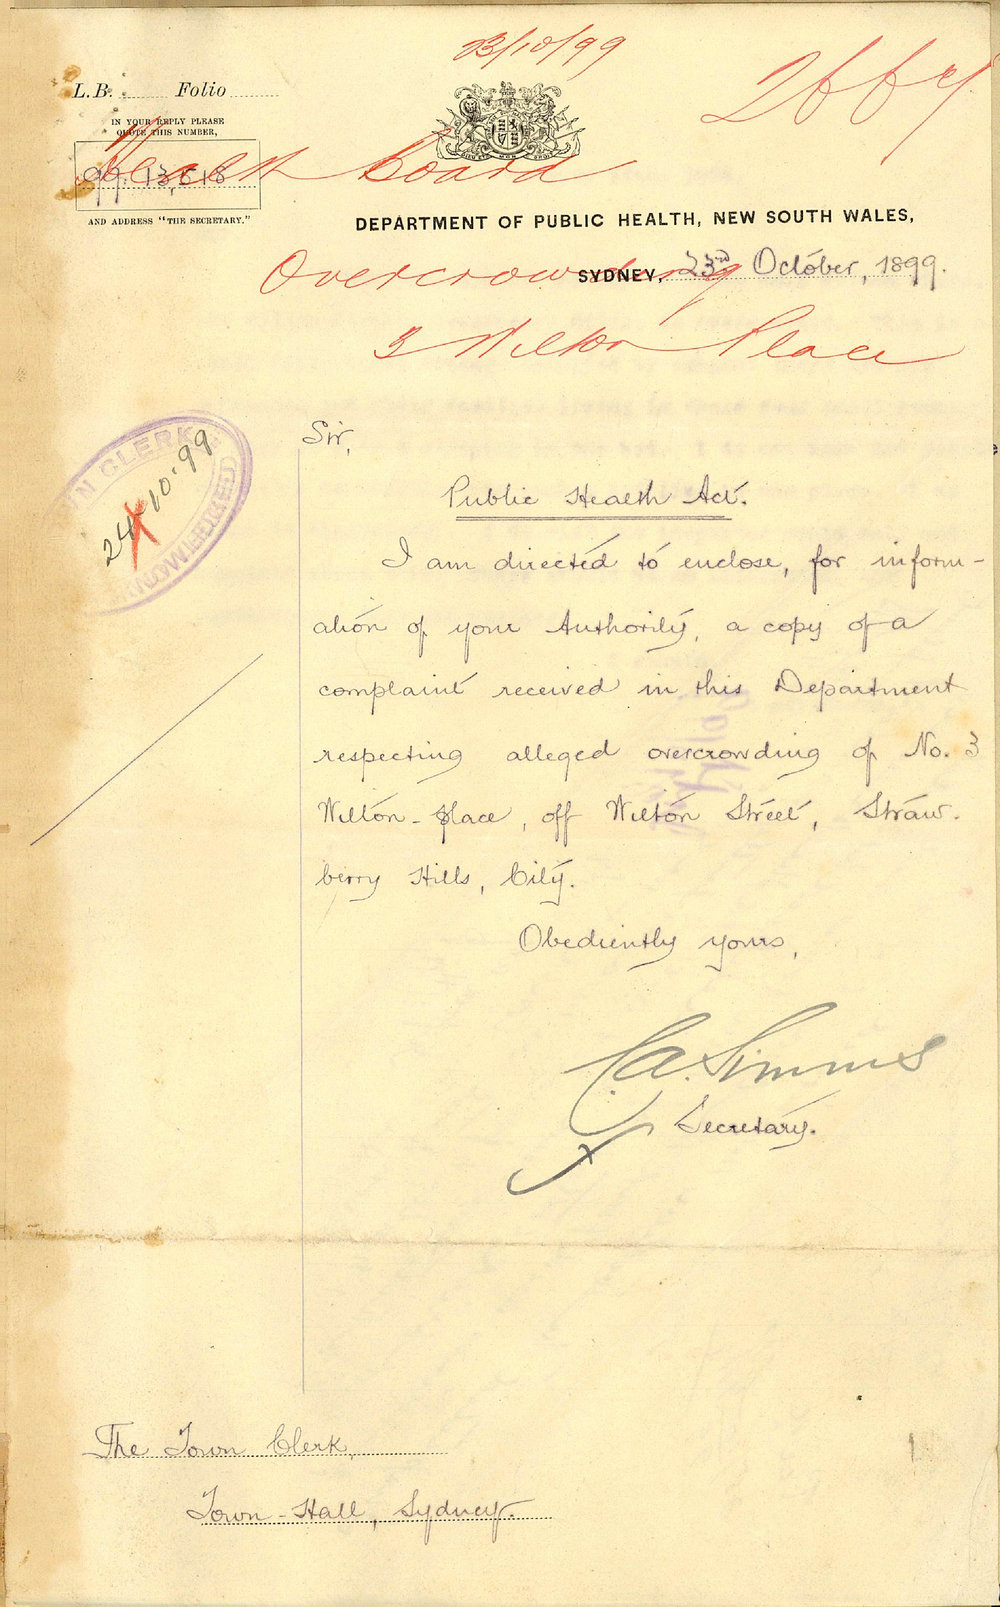 23/10/99
2667
L.B. Folio
IN YOUR REPLY PLEASE
QUOTE THIS NUMBER,
99. 13,618
AND ADDRESS "THE SECRETARY."
Health Board
DEPARTMENT OF PUBLIC HEALTH, NEW SOUTH WALES,
SYDNEY, 23rd October, 1899.
Overcrowding
3 Wilton Place
CLERK
24-10-99
ACKNOWLEDGED
Sir,
Public Health Act.
I am directed to enclose, for inform-
ation of your Authority, a copy of a
complaint received in this Department
respecting alleged overcrowding of No. 3
Wilton-place, off Wilton Street, Straw-
berry Hills, City.
Obediently yours,
C.A. Simms
Secretary.
The Town Clerk,
Town-Hall, Sydney.